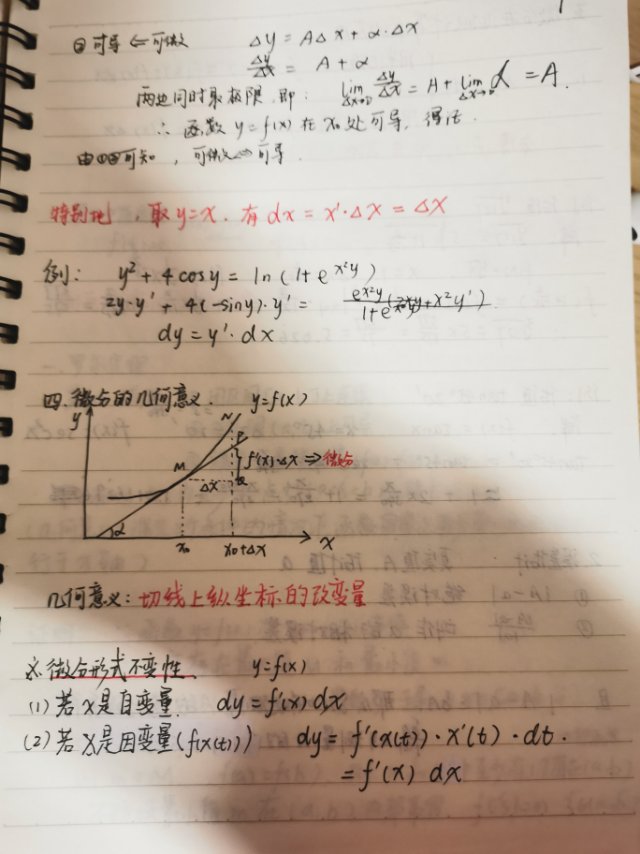 ②可导 ⇐ 可微 Δy = AΔx + α·Δx
Δy/Δx = A + α
两边同时取极限,即: lim Δx→0 Δy/Δx = A + lim Δx→0 α = A.
∴ 函数 y=f(x) 在 x₀ 处可导, 得证.
由①②可知, 可微 ⇔ 可导.
特别地, 取 y=x. 有 dx = x'·Δx = Δx
例: y² + 4cosy = ln(1+e^{x²y})
2y·y' + 4(-siny)·y' = e^{x²y}(2xy+x²y')/1+e^{x²y}
dy = y'·dx
四.微分的几何意义.
y=f(x)
y
N
P
M
f'(x)·Δx ⇒ 微分
Δx
Q
α
x₀
x₀+Δx
x
几何意义: 切线上纵坐标的改变量
※微分形式不变性. y=f(x)
(1) 若x是自变量. dy = f'(x) dx
(2) 若x是因变量(f(x(t))) dy = f'(x(t))·x'(t)·dt.
= f'(x) dx